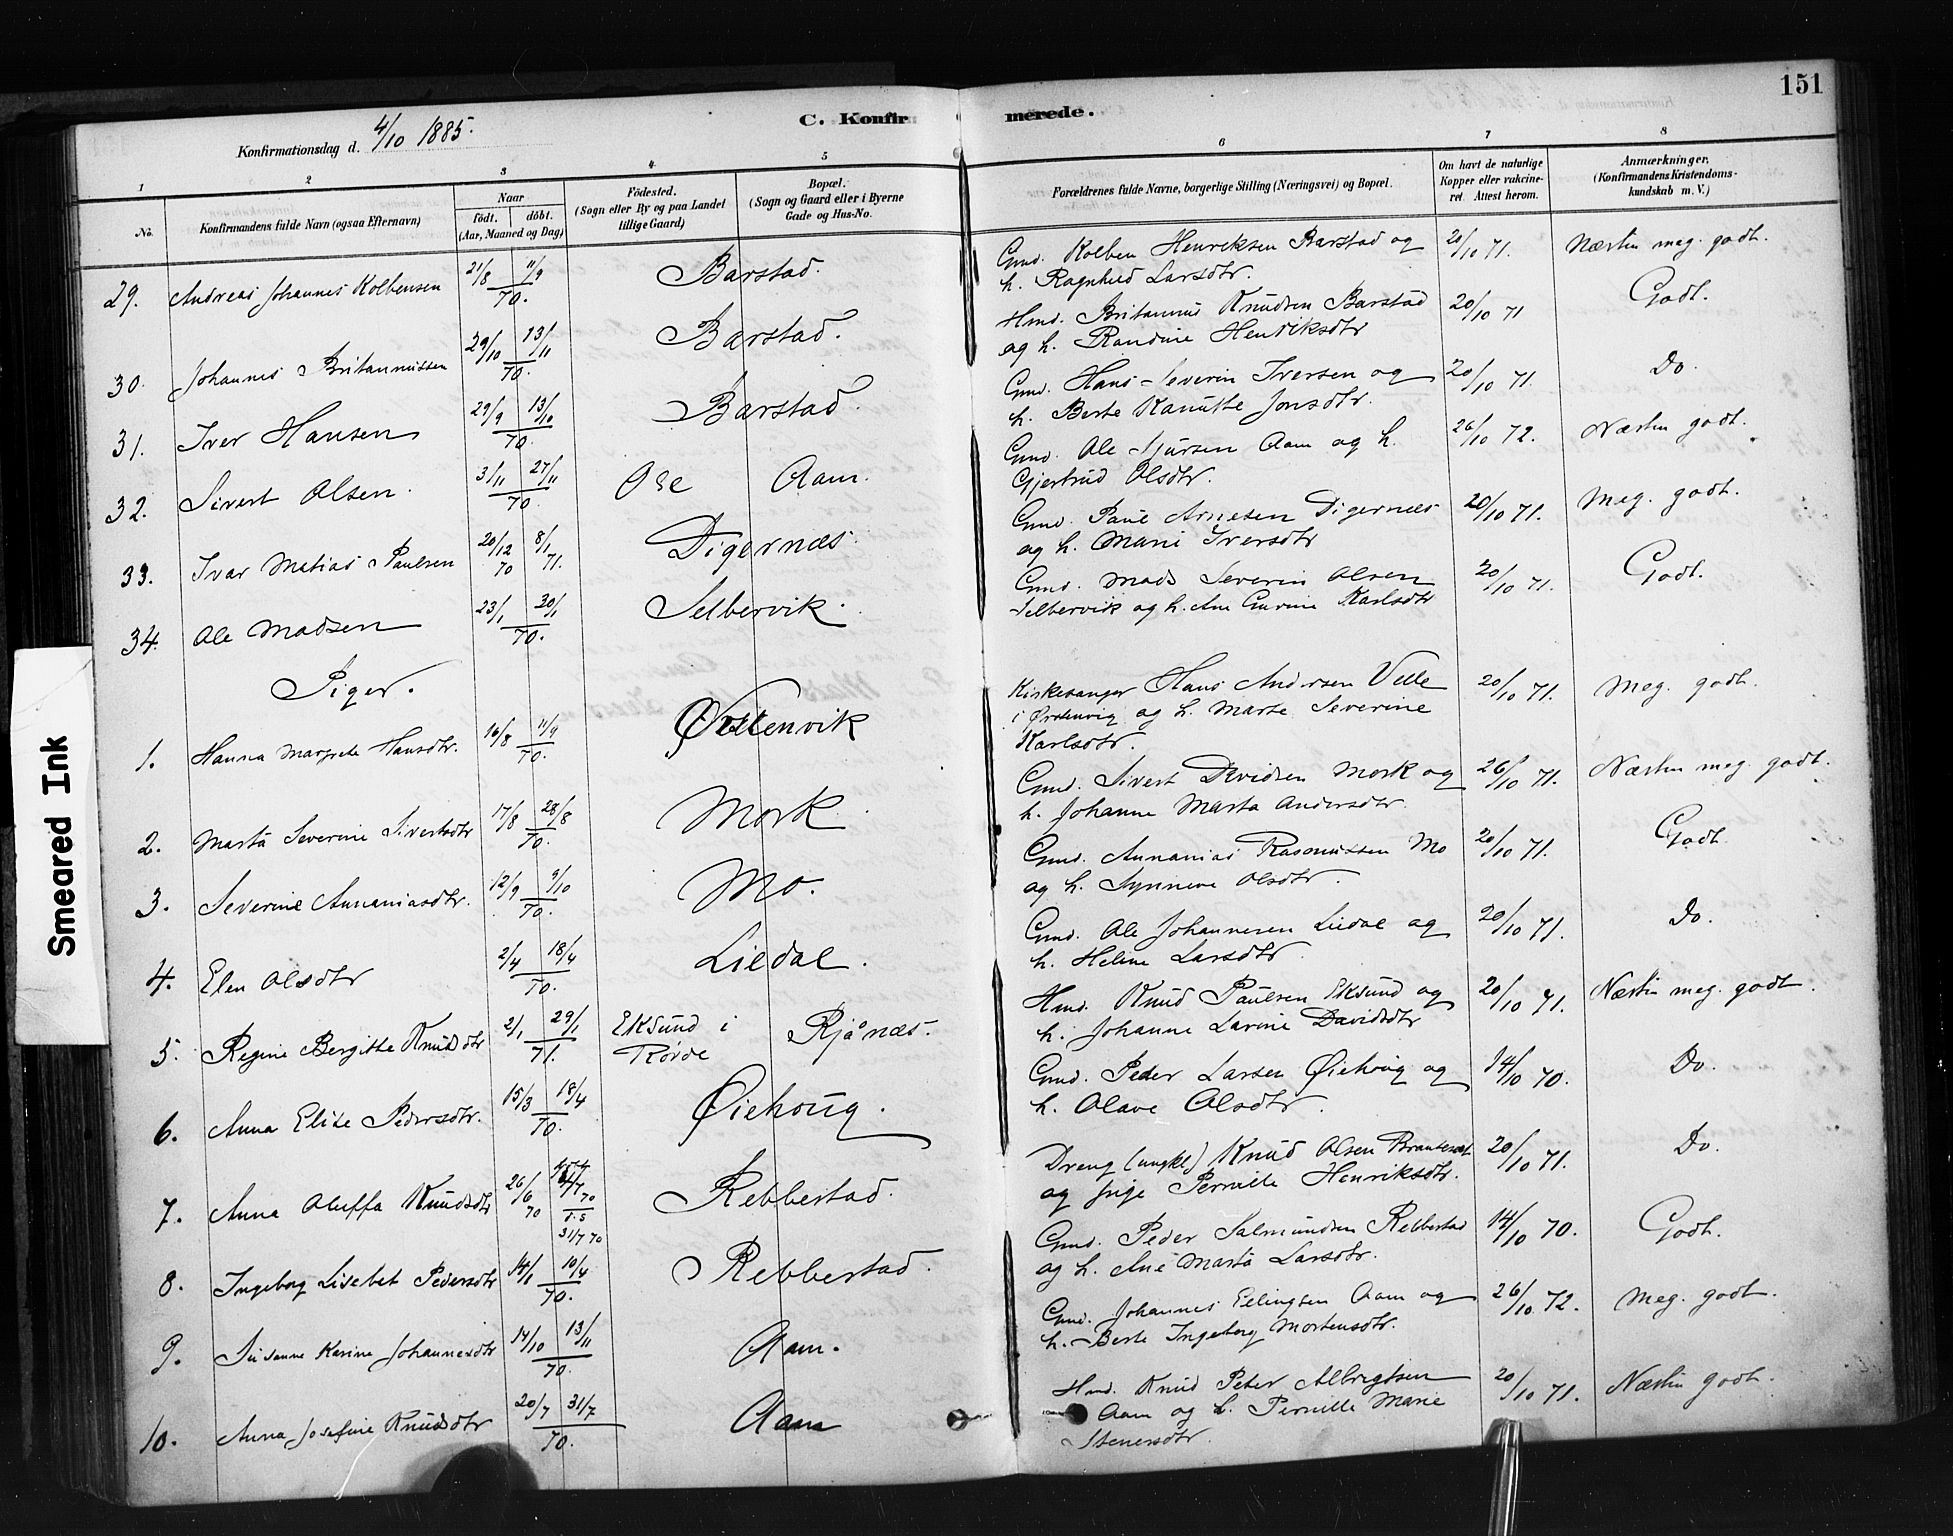 151
C. Konfirmerede.
Konfirmationsdag d. 4/10 1885.
1 2 3 4 5 6 7 8
No.
Konfirmandens fulde Navn (ogsaa Efternavn)
Naar
født. døbt.
(Aar, Maaned og Dag)
Fødested.
(Sogn eller By og paa Landet
tillige Gaard)
Bopæl.
(Sogn og Gaard eller i Byerne
Gade og Hus-No.
Forældrenes fulde Navne, borgerlige Stilling (Næringsvei) og Bopæl.
Om havt de naturlige
Kopper eller vakcine-
ret. Attest herom.
Anmærkninger.
(Konfirmandens Kristendoms-
kundskab m. V.)
29. Andreas Johannes Kolbensen 21/8 11/9 70. Barstad. Gmd. Kolben Henriksen Barstad og 20/10 71. Næstin meg. godt.
h. Ragnhild Larsdtr.
30. Johannes Britanniussen 29/10 13/11 70. Barstad. Hmd. Britannius Knudsen Barstad 20/10 71 Godt.
og h. Randine Henriksdtr
31. Iver Hansen 29/9 13/10 70. Barstad. Gmd. Hans Severin Iversen og 20/10 71. Do.
h. Berte Kanutte Jonsdtr.
32. Sivert Olsen. 3/11 27/11 70. Ose Aam. Gmd. Ole Sjursen Aam og h. 26/10 72. Næstin godt.
Gjertrud Olsdtr.
33. Ivar Matias Paulsen 20/12 70 8/1 71. Digernæs. Gmd. Paul Arnesen Digernæs 20/10 71. Meg. godt.
og h. Marie Iversdtr
34. Ole Madsen 23/1 30/1 70. Selbervik. Gmd. Mads Severin Olsen 20/10 71. Godt.
Selbervik og h. Ane Gurine Karlsdtr
Piger.
1. Hanna Margrete Hansdtr. 16/8 11/9 70. Ørstenvik Kirkesanger Hans Andersen Velle 20/10 71. Meg. godt.
i Ørstenvig og h. Marte Severine
Karlsdtr.
2. Marta Severine Sivertsdtr 17/8 28/8 70. Mork. Gmd. Sivert Davidsen Mork og 26/10 71. Næstin meg. godt.
h. Johanne Marta Andersdtr.
3. Severine Annaniasdtr. 12/9 9/10 70. Mo. Gmd. Annanias Rasmussen Mo 20/10 71. Godt.
og h. Synneve Olsdtr.
4. Elen Olsdtr 2/4 18/4 70. Liedal. Gmd. Ole Johannesen Liedal og 20/10 71. Do.
h. Heline Larsdtr
5. Regine Bergitte Knudsdtr 2/1 29/1 71. Eksund i Rjånæs. Hmd. Knud Paulsen Eksund og 20/10 71. Næstin meg. godt.
Rovde h. Johanne Lavine Davidsdtr
6. Anna Elise Pedersdtr. 15/3 18/4 70. Øiehoug. Gmd. Peder Larsen Øiehoug og 14/10 70. Do.
h. Olave Olsdtr.
7. Anna Oluffa Knudsdtr 26/6 70 31/7 70 Rebbestad. Dreng (ungkl.) Knud Olsen 20/10 71. Do.
og pige Pernille Henriksdtr.
8. Ingeborg Lisebet Pedersdtr 10/4 70. Rebbestad. Gmd. Peder Salmundsen Rebbestad 14/10 70. Godt.
og h. Ane Marta Larsdtr.
9. Susanne Karine Johannesdtr 14/10 13/11 70. Aam. Gmd. Johannes Ellingsen Aam og 26/10 72. Meg. godt.
h. Berte Ingeborg Mortensdtr.
10. Anna Josefine Knudsdtr 20/7 31/7 70. Aam Hmd. Knud Peter Albregtsen 20/10 71. Næstin godt.
Aam og h. Pernille Marie
Stenersdtr.
Smeared Ink